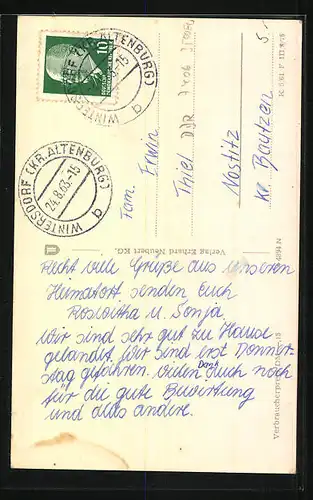 WINTERSDORF (KR. ALTENBURG)
24.8.63-15
b
WINTERSDORF (KR. ALTENBURG)
-15
b
10
Fam. Erwin
Thiel
Nostitz
Kr. Bautzen
DDR 7406
5.-
Verlag Erhard Neubert KG.
Recht viele Grüße aus unseren
Heimatort senden Euch
Roswitha u. Sonja.
Wir sind sehr gut zu Hause
gelandet. Wir sind erst Donners-
tag gefahren. Vielen Dank Euch noch
für die gute Bewirtung
und alles andere.